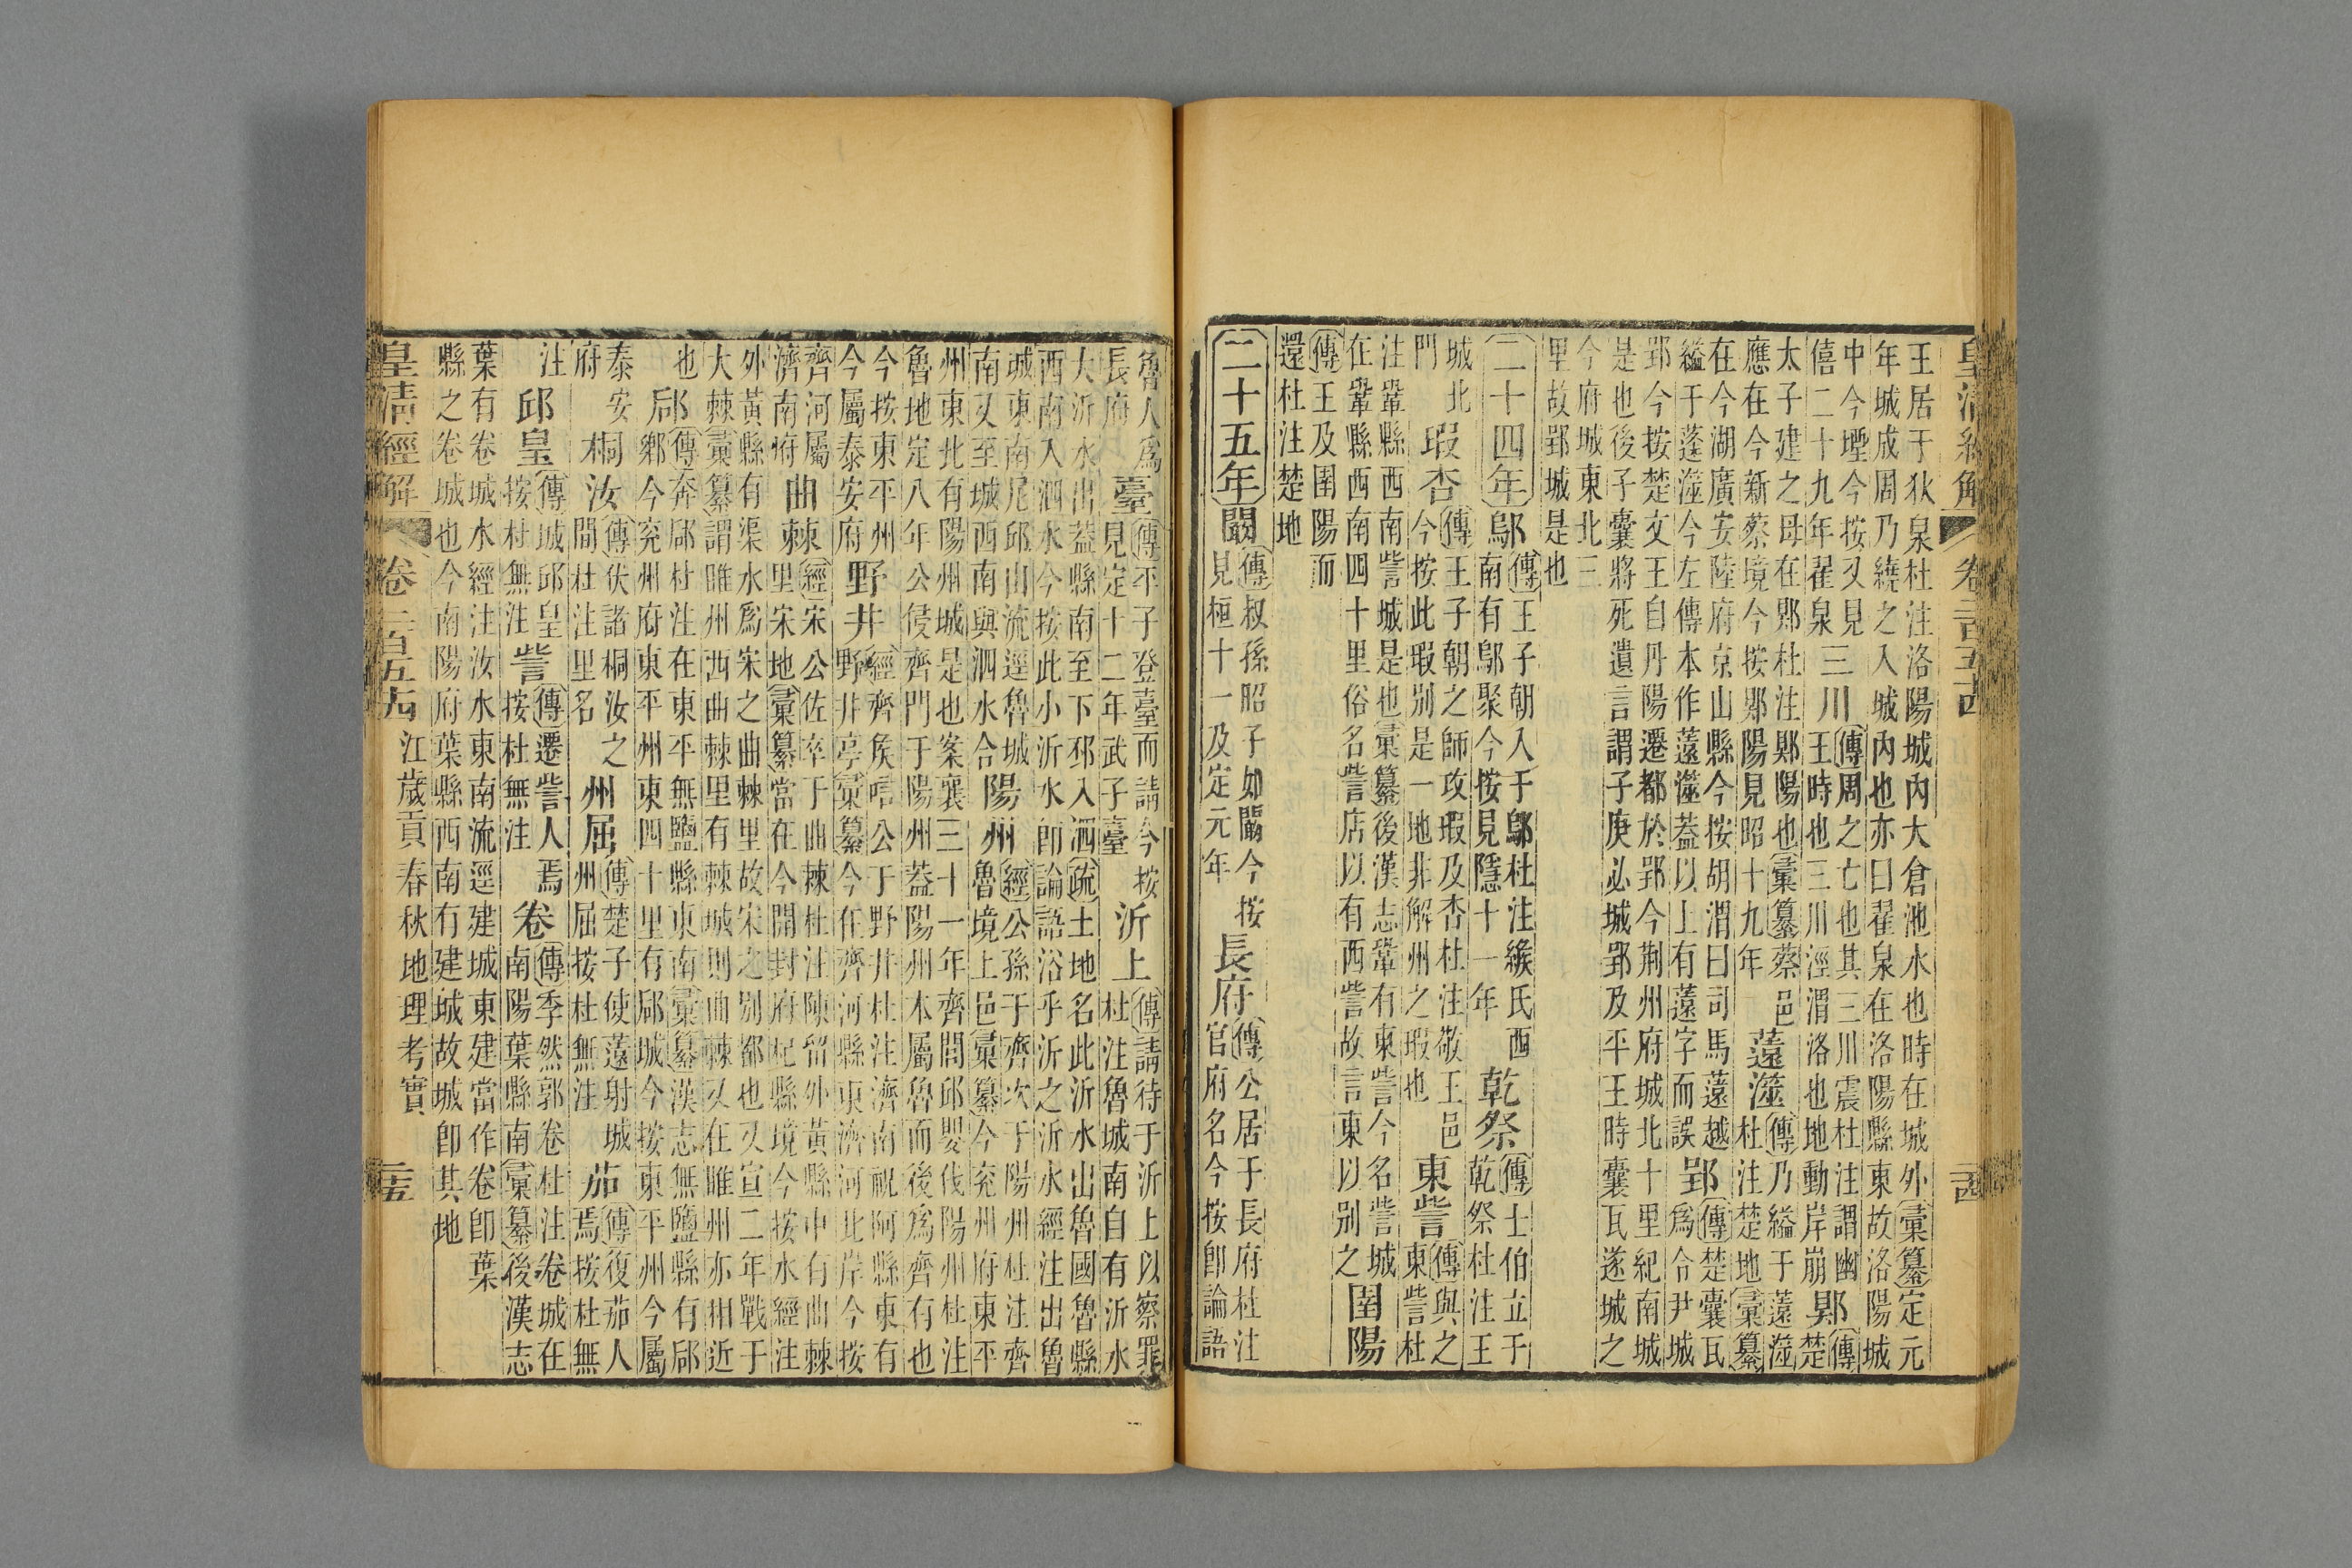 皇清經解 卷二百五十四 二四
王居于狄泉杜注洛陽城內大倉池水也時在城外彙纂定元
年城成周乃繞之入城內也亦曰翟泉在洛陽縣東故洛陽城
中今堙今按又見
僖二十九年翟泉
三川
傳周之亡也其三川震杜注謂幽
王時也三川涇渭洛也地動岸崩
郹
傳
楚
太子建之母在郹杜注郹陽也彙纂蔡邑
應在今新蔡境今按郹陽見昭十九年
薳澨
傳乃縊于薳澨
杜注楚地彙纂
在今湖廣安陸府京山縣今按胡渭曰司馬薳越
縊于蓬澨今左傳本作薳澨蓋以上有薳字而誤
郢
傳楚囊瓦
爲令尹城
郢今按楚文王自丹陽遷都於郢今荆州府城北十里紀南城
是也後子囊將死遺言謂子庚必城郢及平王時囊瓦遂城之
今府城東北三
里故郢城是也
二十四年
鄔
傳王子朝入于鄔杜注緱氏西
南有鄔聚今按見隱十一年
乾祭
傳士伯立于
乾祭杜注王
城北
門
瑕杏
傳王子朝之師攻瑕及杏杜注敬王邑
今按此瑕別是一地非解州之瑕也
東訾
傳與之
東訾杜
注鞏縣西南訾城是也彙纂後漢志鞏有東訾今名訾城
在鞏縣西南四十里俗名訾店以有西訾故言東以別之
圉陽
傳王及圉陽而
還杜注楚地
二十五年
闞
傳叔孫昭子如闞今按
見桓十一年及定元年
長府
傳公居于長府杜注
官府名今按卽論語
魯人爲
長府
臺
傳平子登臺而請今按
見定十二年武子臺
沂上
傳請待于沂上以察罪
杜注魯城南自有沂水
大沂水出蓋縣南至下邳入泗疏土地名此沂水出魯國魯縣
西南入泗水今按此小沂水卽論語浴乎沂之沂水經注出魯
城東南尼邱山流逕魯城
南又至城西南與泗水合
陽州
經公孫于齊次于陽州杜注齊
魯境上邑彙纂今兖州府東平
州東北有陽州城是也案襄三十一年齊閭邱嬰伐陽州杜注
魯地定八年公侵齊門于陽州蓋陽州本屬魯而後爲齊有也
今按東平州
今屬泰安府
野井
經齊矦唁公于野井杜注濟南祝阿縣東有
野井亭彙纂今在齊河縣東濟河北岸今按
齊河屬
濟南府
曲棘
經宋公佐卒于曲棘杜注陳留外黃縣中有曲棘
里宋地彙纂當在今開封府杞縣境今按水經注
外黃縣有渠水爲宋之曲棘里故宋之別都也又宣二年戰于
大棘彙纂謂睢州西曲棘里有棘城則曲棘又在睢州亦相近
也
郈
傳奔郈杜注在東平無鹽縣東南彙纂漢志無鹽縣有郈
鄉今兖州府東平州東四十里有郈城今按東平州今屬
泰安
府
桐汝
傳伏諸桐汝之
閭杜注里名
州屈
傳楚子使薳射城
州屈按杜無注
茄
傳復茄人
焉按杜無
注
邱皇
傳城邱皇
按杜無注
訾
傳遷訾人焉
按杜無注
卷
傳季然郭卷杜注卷城在
南陽葉縣南彙纂後漢志
葉有卷城水經注汝水東南流逕建城東建當作卷卽葉
縣之卷城也今南陽府葉縣西南有建城故城卽其地
皇清經解 卷二百五十四 江歲貢春秋地理考實 二五